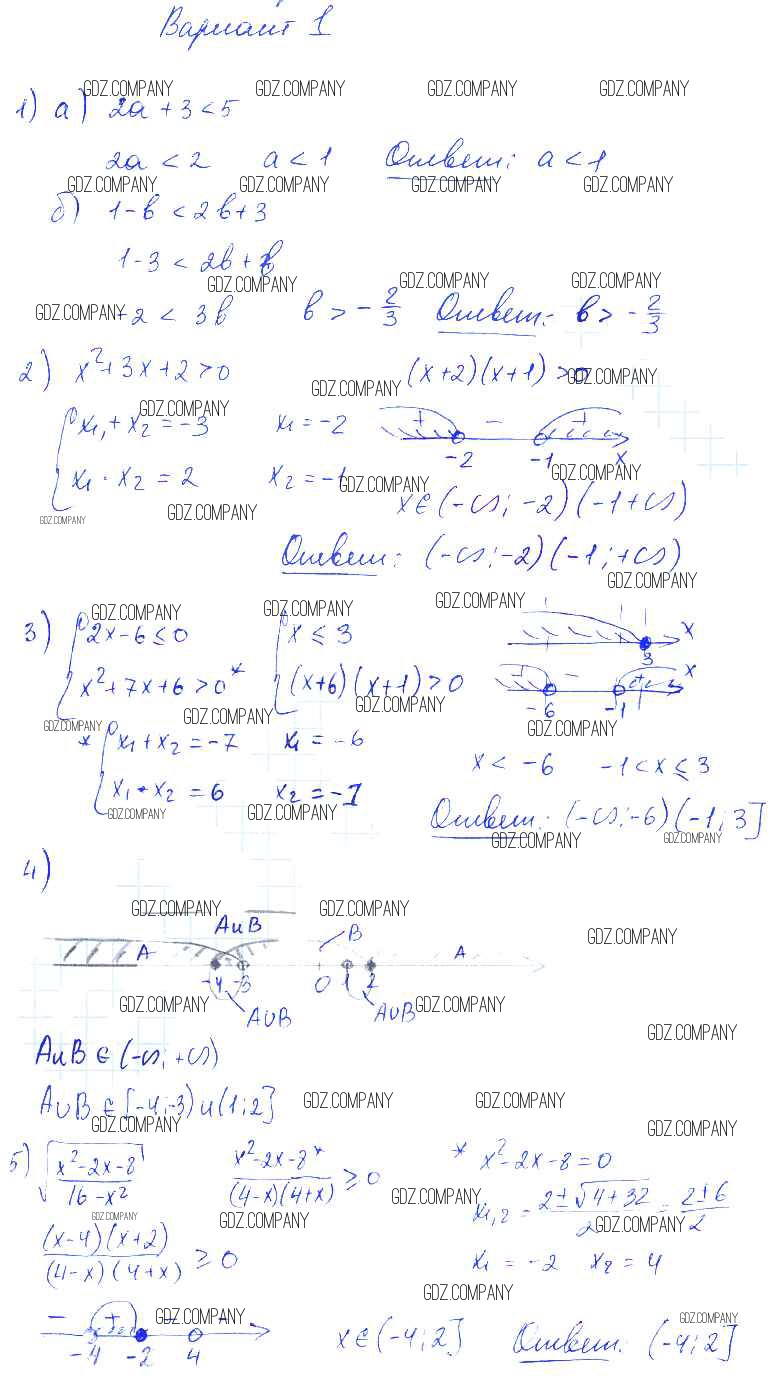 Вариант 1
GDZ.COMPANY GDZ.COMPANY GDZ.COMPANY GDZ.COMPANY
1) а) 2a + 3 < 5
2a < 2 a < 1 Ответ: a < 1
GDZ.COMPANY GDZ.COMPANY GDZ.COMPANY GDZ.COMPANY
б) 1 - b < 2b + 3
1 - 3 < 2b + b
GDZ.COMPANY GDZ.COMPANY GDZ.COMPANY
GDZ.COMPANY - 2 < 3b b > - 2/3 Ответ: b > - 2/3
2) x² + 3x + 2 > 0 (x+2)(x+1) > 0
GDZ.COMPANY GDZ.COMPANY
GDZ.COMPANY
x₁ + x₂ = -3 x₁ = -2 + - +
-2 -1 x
x₁ · x₂ = 2 x₂ = -1 GDZ.COMPANY GDZ.COMPANY
GDZ.COMPANY GDZ.COMPANY x ∈ (-∞; -2) (-1 +∞)
Ответ: (-∞; -2) (-1; +∞)
GDZ.COMPANY
GDZ.COMPANY GDZ.COMPANY GDZ.COMPANY
3) 2x - 6 ≤ 0 x ≤ 3 x
3
x² + 7x + 6 > 0 * (x+6)(x+1) > 0 + - + x
GDZ.COMPANY GDZ.COMPANY GDZ.COMPANY -6 -1
GDZ.COMPANY
* x₁ + x₂ = -7 x₁ = -6
x < -6 -1 < x ≤ 3
x₁ · x₂ = 6 x₂ = -1
GDZ.COMPANY GDZ.COMPANY Ответ: (-∞; -6) (-1; 3]
GDZ.COMPANY GDZ.COMPANY
4)
GDZ.COMPANY GDZ.COMPANY
AuB B GDZ.COMPANY
A A
-4 -3 0 1 2
GDZ.COMPANY A∪B A∪B GDZ.COMPANY
GDZ.COMPANY
AuB ∈ (-∞; +∞)
A∪B ∈ [-4; -3) u (1; 2] GDZ.COMPANY GDZ.COMPANY
GDZ.COMPANY GDZ.COMPANY
5) √(x² - 2x - 8)/(16 - x²) (x² - 2x - 8*)/((4-x)(4+x)) ≥ 0 * x² - 2x - 8 = 0
GDZ.COMPANY
x₁,₂ = (2 ± √(4 + 32))/2 = (2 ± 6)/2
GDZ.COMPANY GDZ.COMPANY GDZ.COMPANY
((x-4)(x+2))/((4-x)(4+x)) ≥ 0 x₁ = -2 x₂ = 4
GDZ.COMPANY
- + GDZ.COMPANY - GDZ.COMPANY
-4 -2 4 x ∈ (-4; 2] Ответ: (-4; 2]